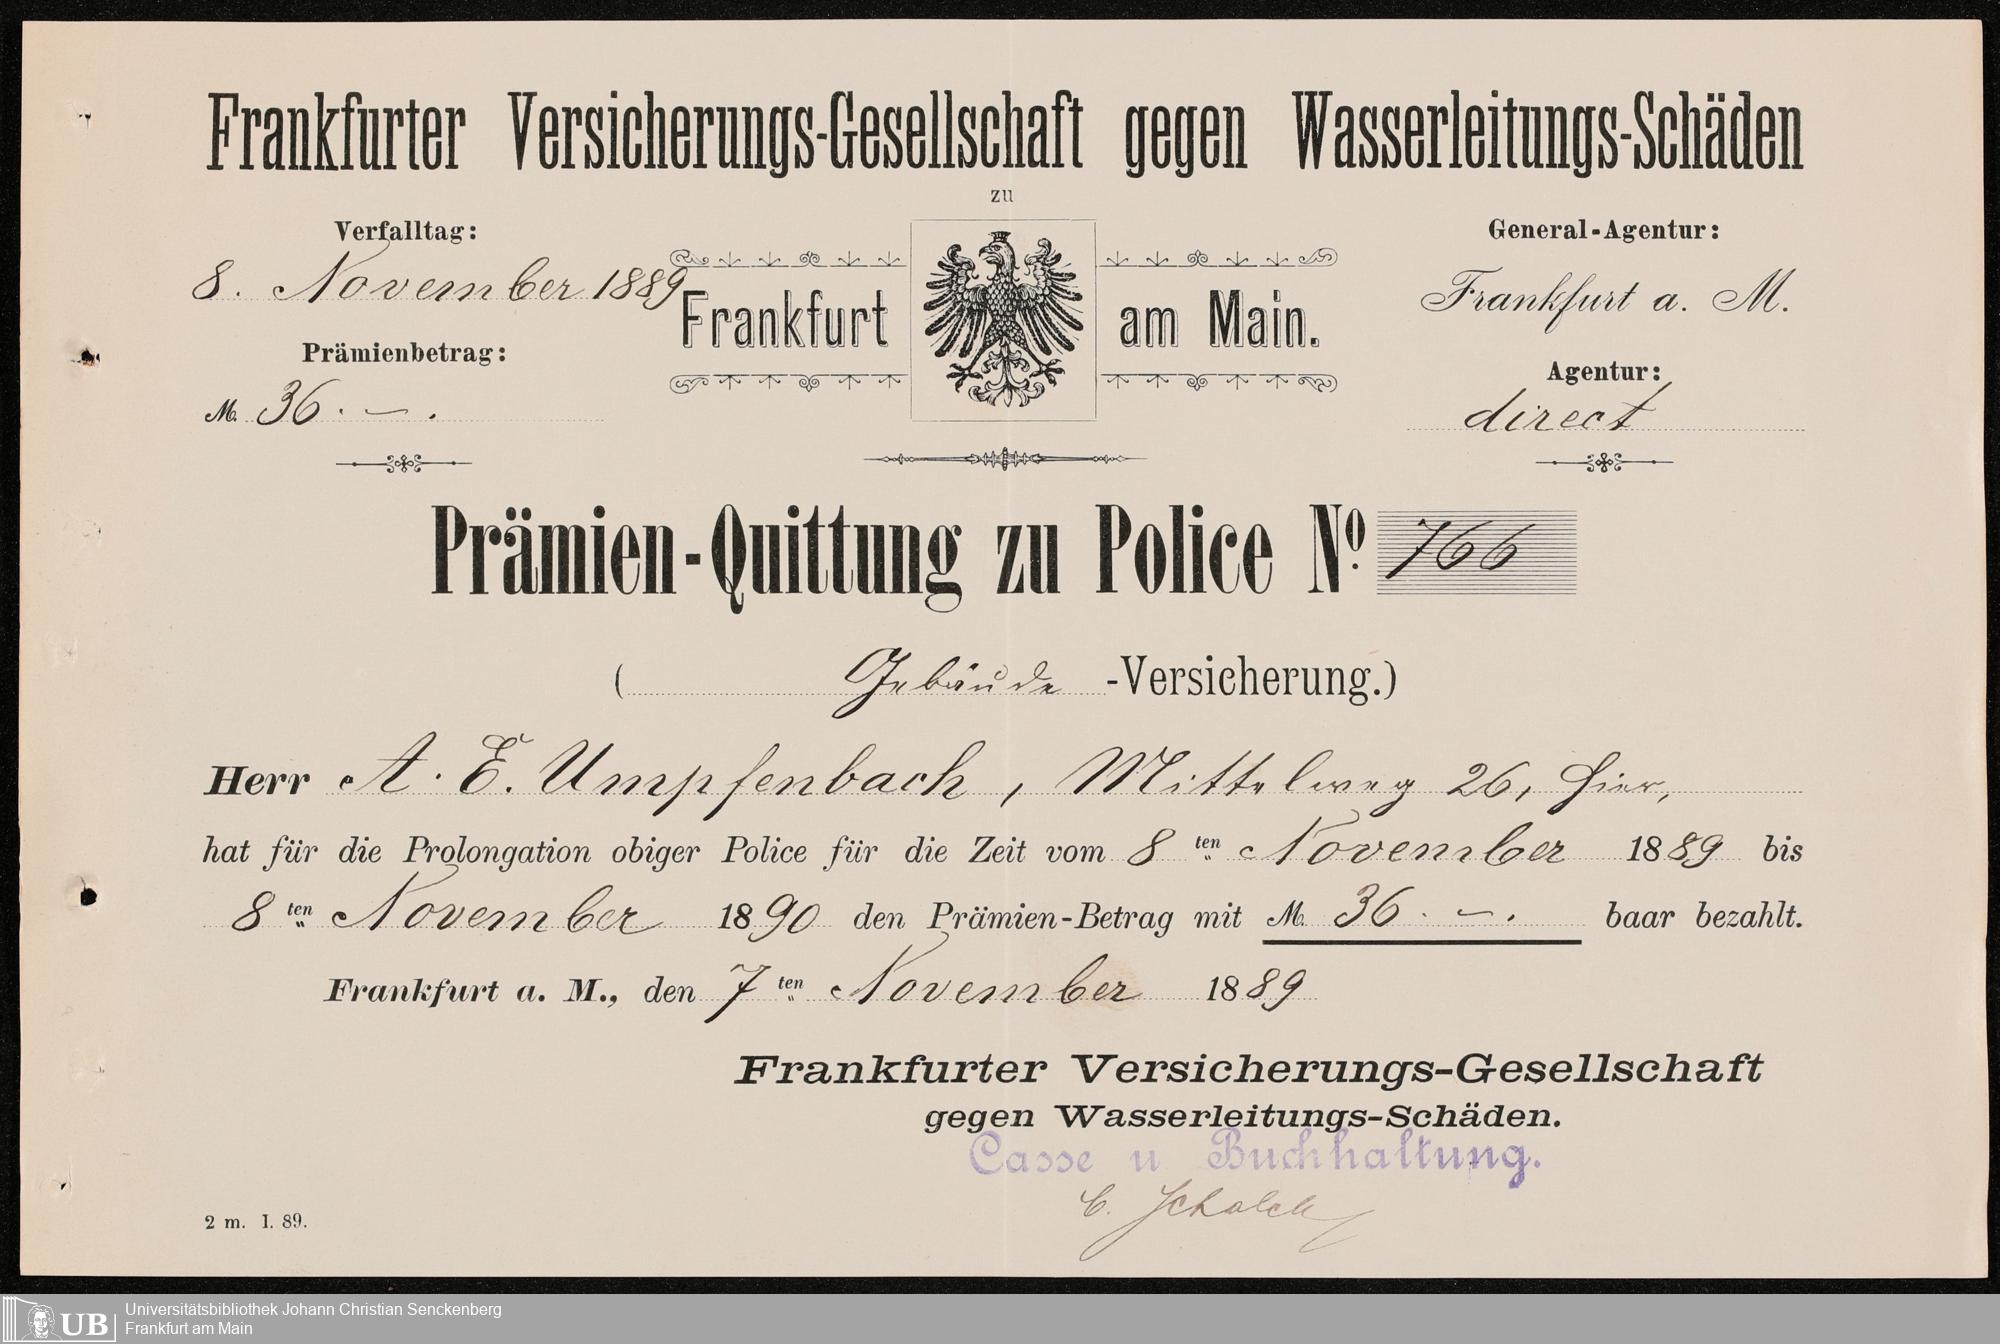 Frankfurter Versicherungs-Gesellschaft gegen Wasserleitungs-Schäden
zu
Frankfurt am Main.
Verfalltag:
8. November 1889
Prämienbetrag:
M. 36. — .
General-Agentur:
Frankfurt a. M.
Agentur:
direct
Prämien-Quittung zu Police No. 766
( Gebäude -Versicherung.)
Herr A. E. Umpfenbach, Mittelweg 26, hier,
hat für die Prolongation obiger Police für die Zeit vom 8 ten November 1889 bis
8 ten November 1890 den Prämien-Betrag mit M. 36. — . baar bezahlt.
Frankfurt a. M., den 7 ten November 1889
Frankfurter Versicherungs-Gesellschaft
gegen Wasserleitungs-Schäden.
Casse u Buchhaltung.
2 m. I. 89.
UB
Universitätsbibliothek Johann Christian Senckenberg
Frankfurt am Main